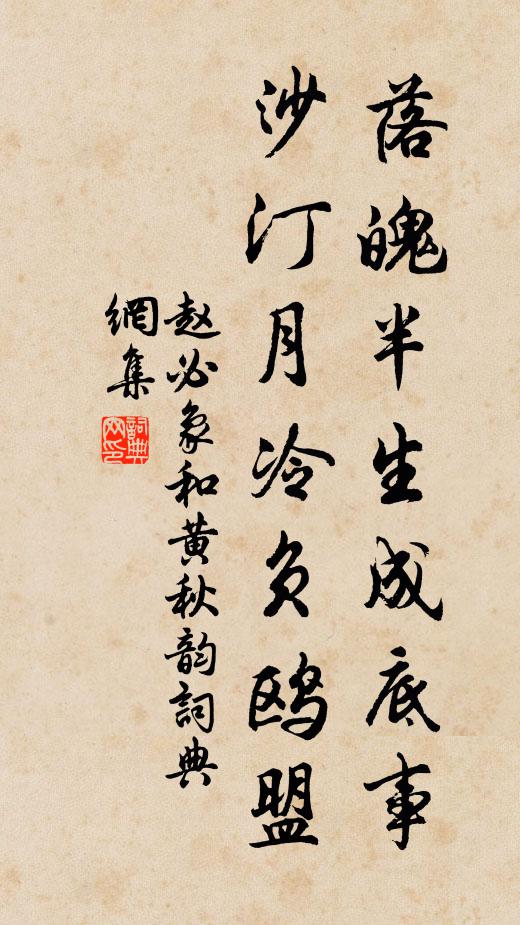 落魄半生成底事
沙汀月冷负鸥盟
赵必象和黄秋韵詞典
網集
詞典網印